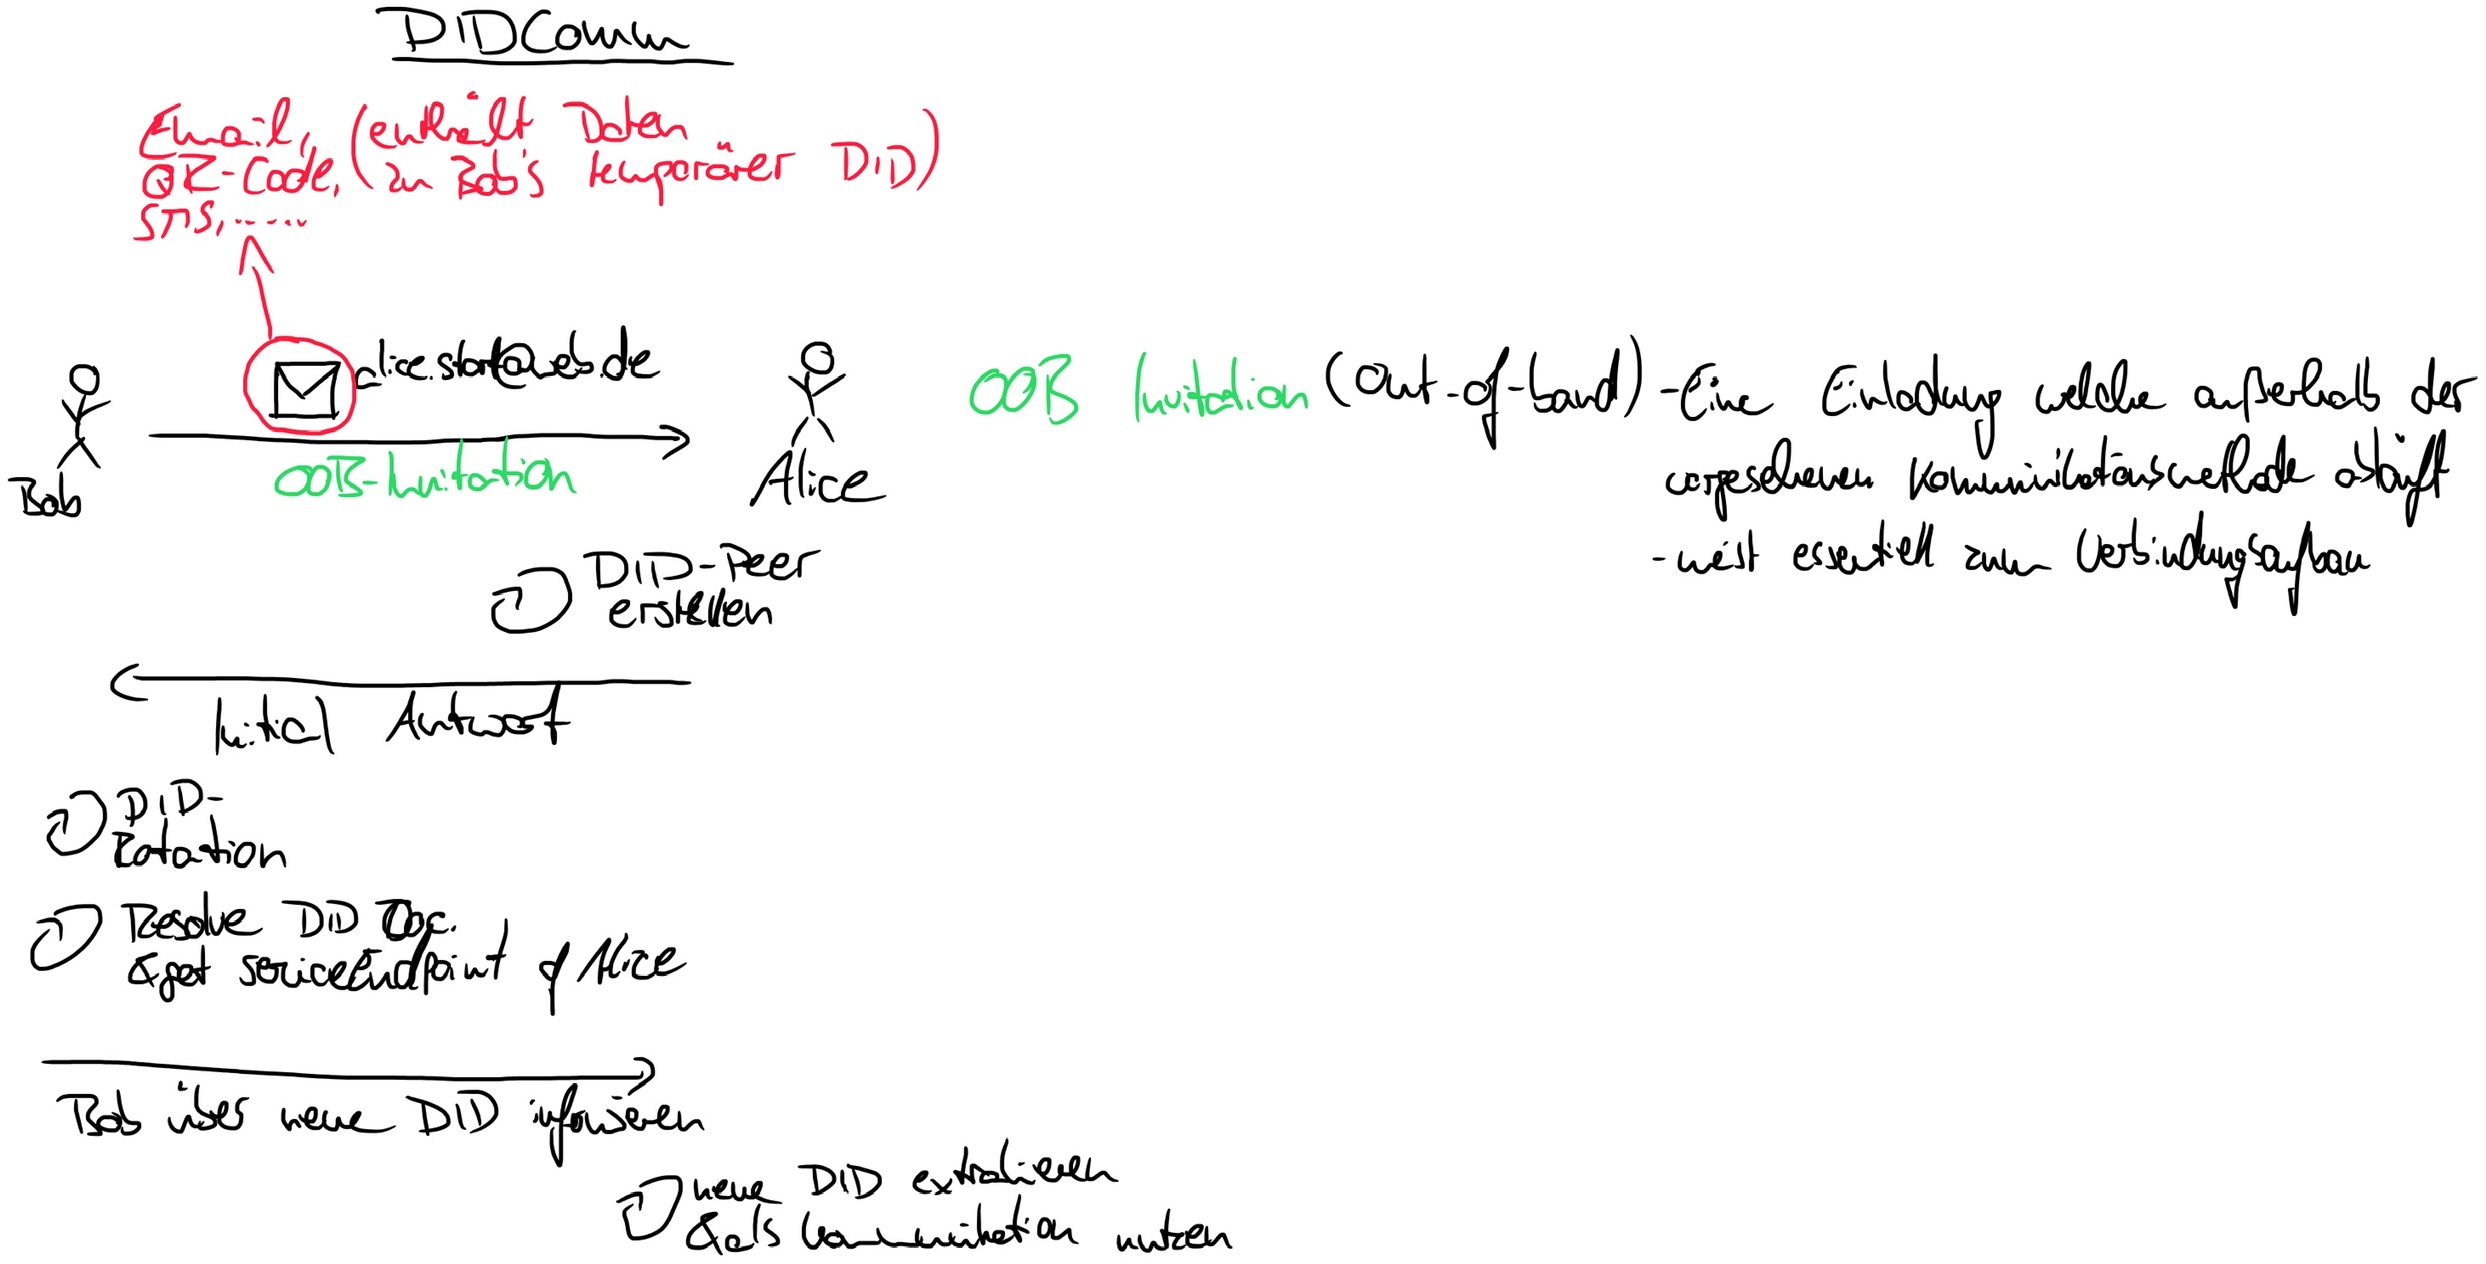 DIDComm
Email, (enthält Daten
QR-Code, zu Bob's temporärer DID)
SMS, ......
alice.start@web.de
OOB-Invitation
Bob
Alice
OOB Invitation (Out-of-band) -Eine Einladung welche außerhalb der
vorgesehenen Kommunikationsmethode abläuft
-meist essentiell zum Verbindungsaufbau
DID-Peer
erstellen
Initial Antwort
DID-
Rotation
Resolve DID Doc.
& get serviceEndpoint of Alice
Bob über neue DID informieren
neue DID extrahieren
& als Kommunikation nutzen